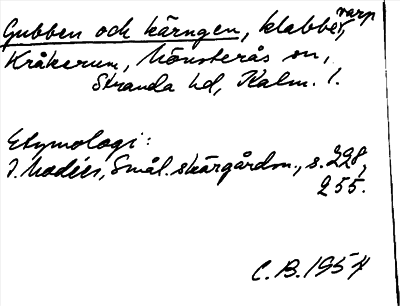 Gubben och kärngen, klabber, varp
Kråkerum, Mönsterås sn,
Stranda hd, Kalm. l.
Etymologi:
I. Modéer, Smål. skärgårdsn., s. 228,
255.
C. B. 1954